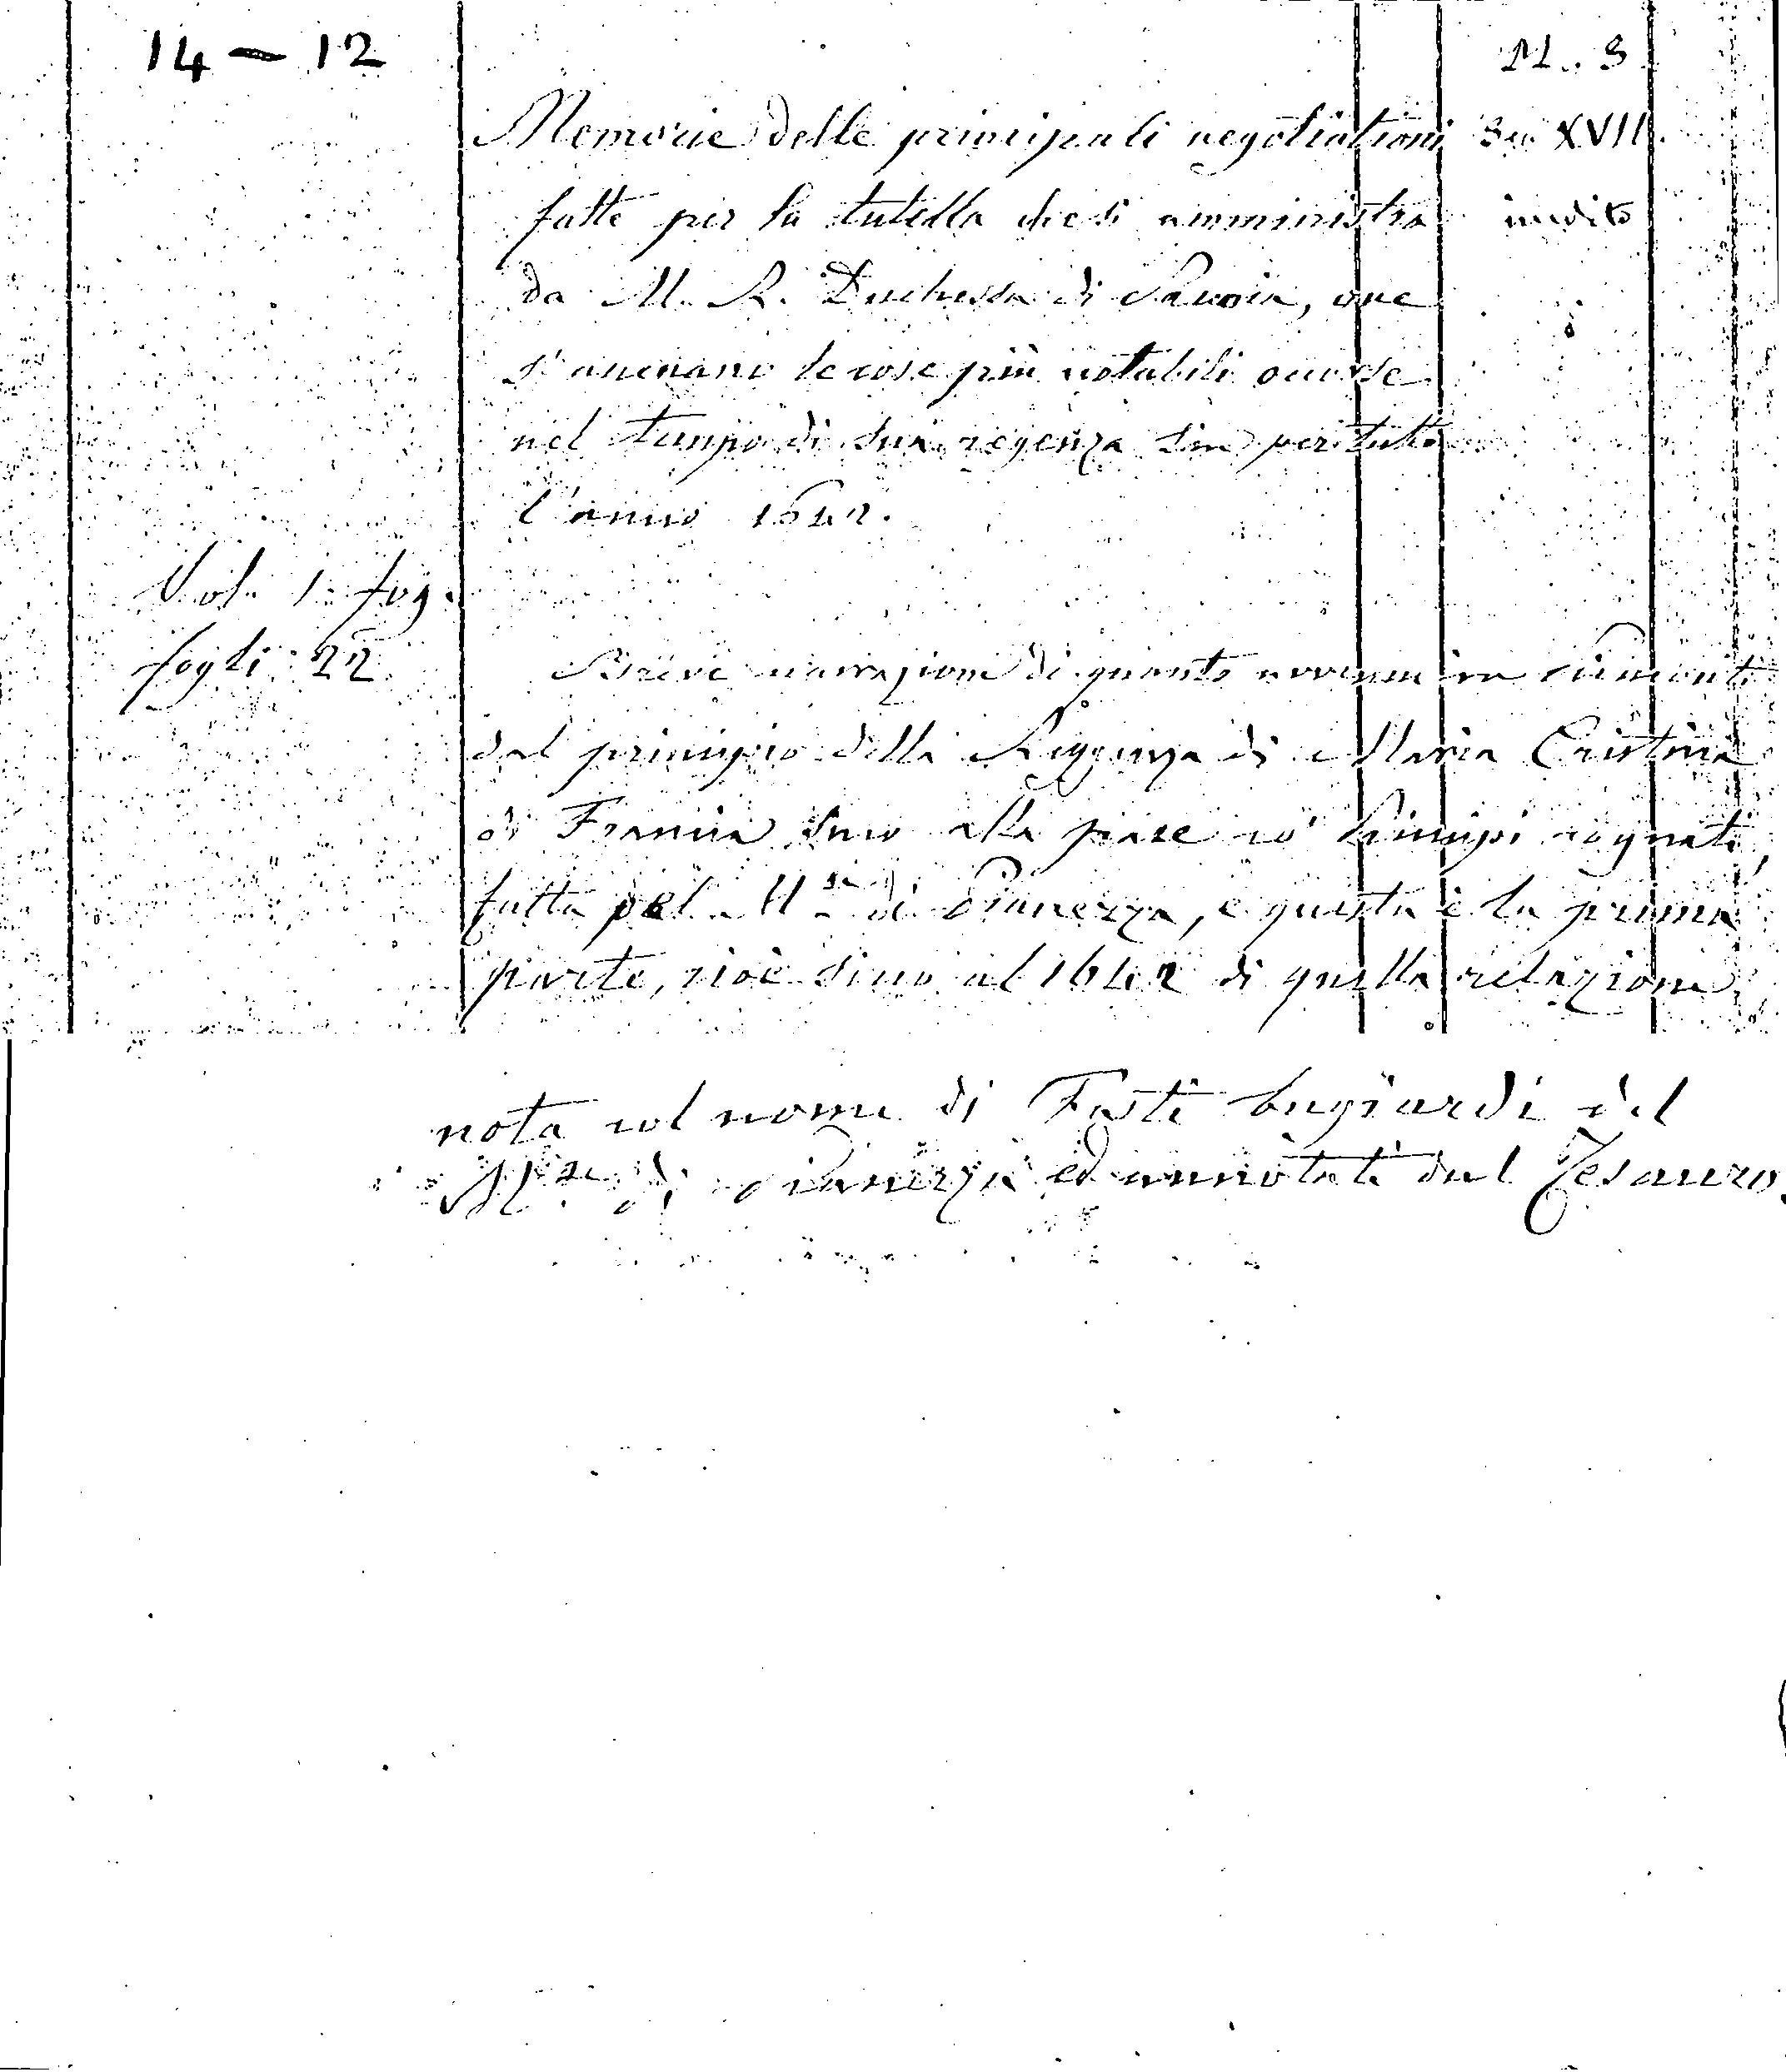 14 — 12
M. S
Memorie delle principali negotiationi Sec XVII.
fatte per la tutella che si amministra inedito
da M. R. Duchessa di Sauoia, oue
s'accenano le cose più notabili occorse
nel tempo di sua regenza sin per tutto
l'anno 1642.
Vol. 1. fog.
fogli 22
Breve narrazione di quanto avvenne in Piemonte
dal principio della Reggenza di Maria Cristina
di Francia sino alla pace co' Principi cognati,
fatta pel M.se di Pianezza, e questa è la prima
parte, cioè sino al 1642 di quella relazione
nota col nome di Fasti bugiardi del
M.se di Pianezza ed annotati dal Tesauro.